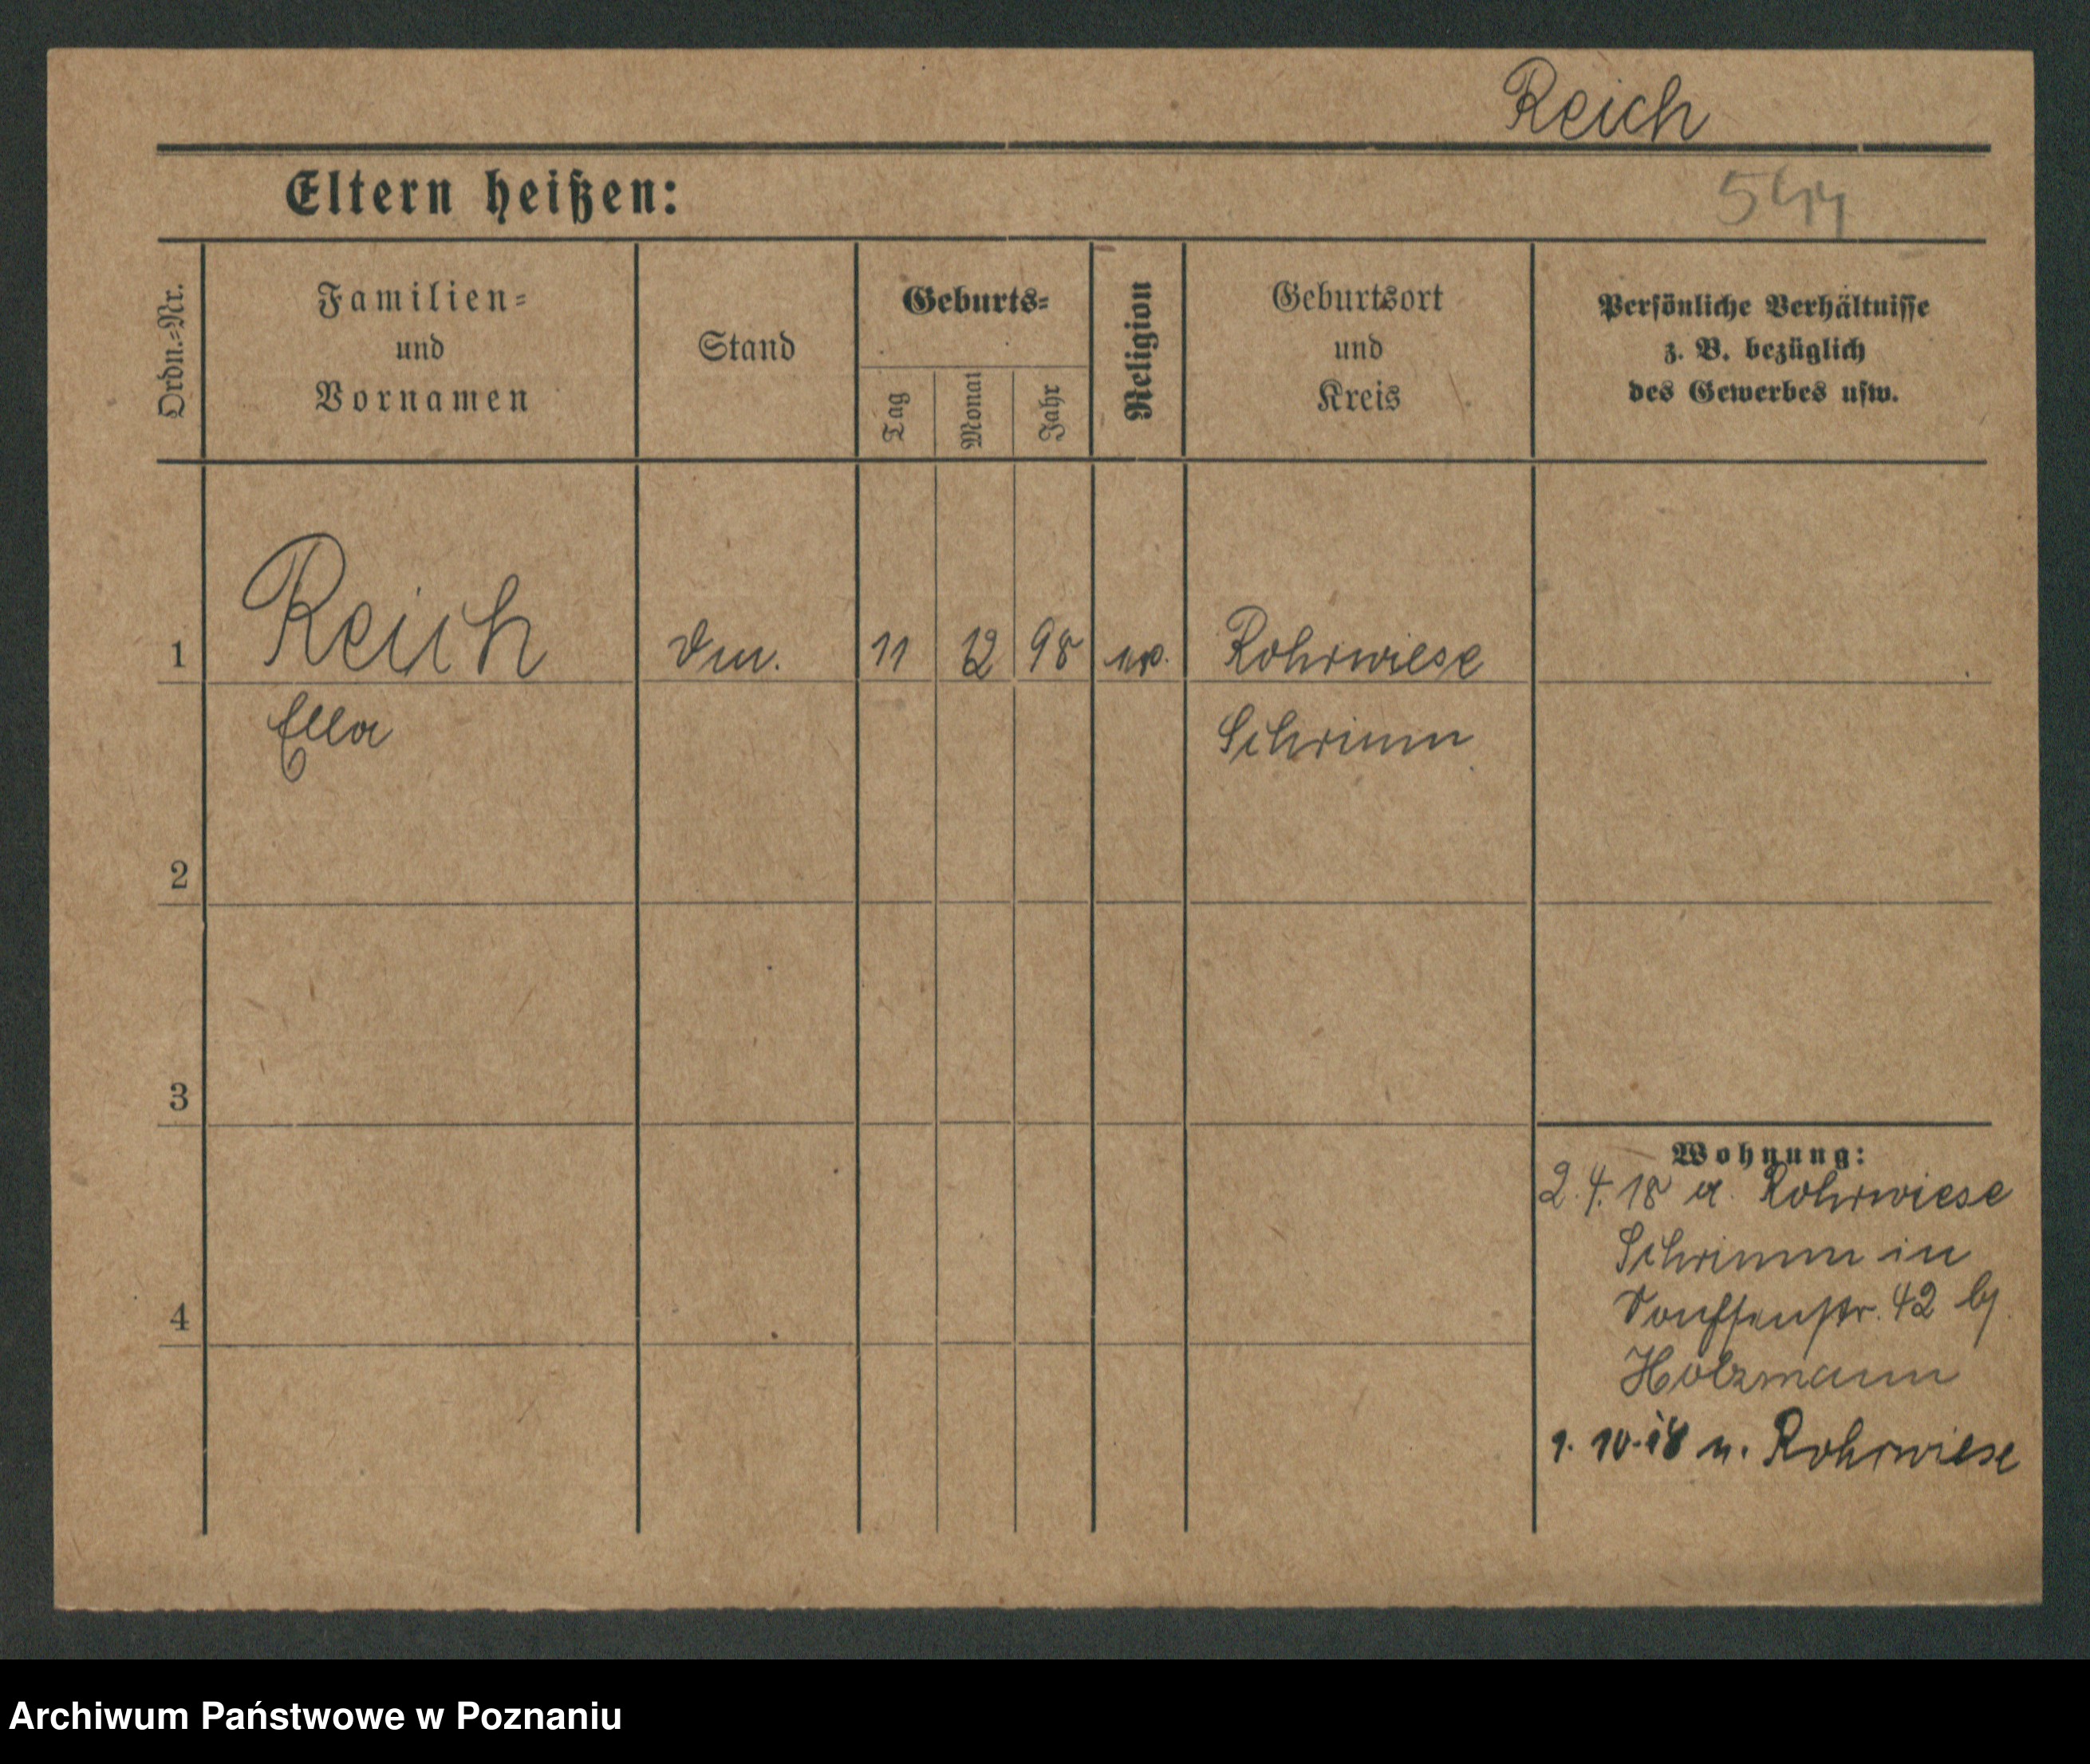 Reich
Eltern heißen:
544
Ordn.=Nr.
Familien=
und
Vornamen
Stand
Geburts=
Tag
Monat
Jahr
Religion
Geburtsort
und
Kreis
Persönliche Verhältnisse
z. B. bezüglich
des Gewerbes usw.
1
Reich
11
12
98
Rohrwiese
Ella
Schrimm
2
3
4
Wohnung:
2.4.18 a. Rohrwiese
Schrimm in
42 b/
Holzmann
1.10.18 n. Rohrwiese
Archiwum Państwowe w Poznaniu